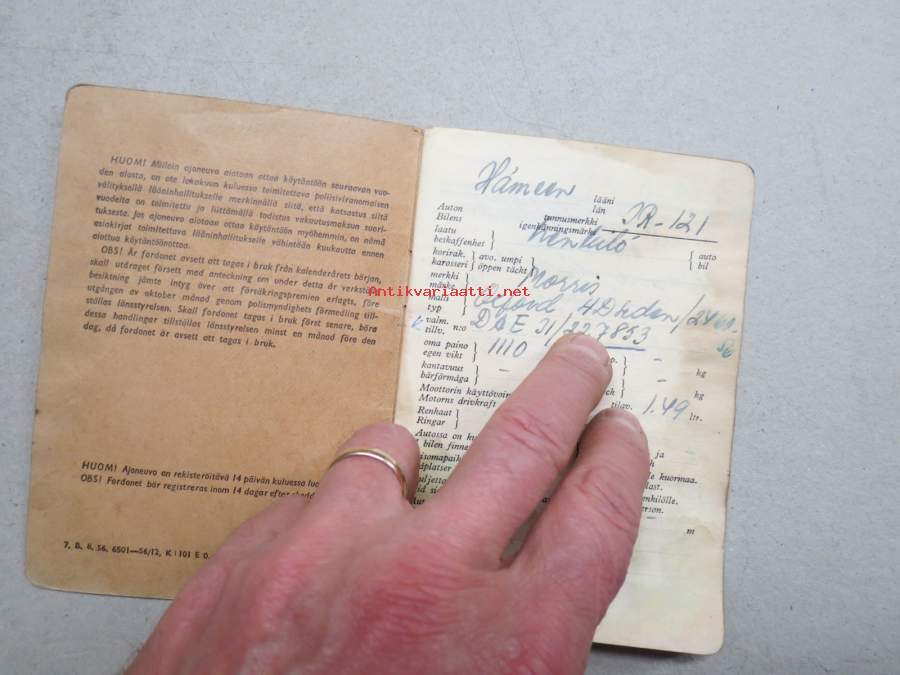 HUOM! Milloin ajoneuvo aiotaan ottaa käytäntöön seuraavan vuo-
den alusta, on
välityksellä lääninhallitukselle merkinnällä siitä, että katsastus siltä
vuodelta on toimitettu ja liittämällä todistus vakuutusmaksun suori-
tuksesta. Jos ajoneuvo aiotaan ottaa käytäntöön myöhemmin, on nämä
asiakirjat toimitettava lääninhallitukselle vähintään kuukautta ennen
aiottua käytäntöönottoa.
OBS! Är fordonet avsett att tagas i bruk från kalenderårets början,
skall utdraget försett med anteckning om under detta år verkställd
besiktning jämte intyg över att försäkringspremien erlagts, före
utgången av oktober månad genom polismyndighets förmedling till-
ställas länsstyrelsen. Skall fordonet tagas i bruk först senare, böra
dessa handlingar tillställas länsstyrelsen minst en månad före den
dag, då fordonet är avsett att tagas i bruk.
HUOM! Ajoneuvo on rekisteröitävä 14 päivän kuluessa
OBS! Fordonet bör registreras inom 14 dagar efter
7, B, 6, 56, 6501—56/12, K 1101 E 0.
Hämeen lääni
län
Auton tunnusmerkki IR-121
Bilens igenkänningsmärke
laatu auto
beskaffenhet bil
korirak. avo. umpi
karosseri öppen täckt
merkki Morris
märke
malli Oxford 4Dhden/
typ
valm. n:o DAE 31/227853
tillv.
oma paino 1110
egen vikt
kantavuus – – kg
bärförmåga
Moottorin käyttövoi – kg
Motorns drivkraft tilav. 1.49 ltr.
Renhaat
Ringar
Autossa on
bilen finne
ja
le kuormaa.
last.
enkilölle.
erson.
m
Antikvariaatti.net